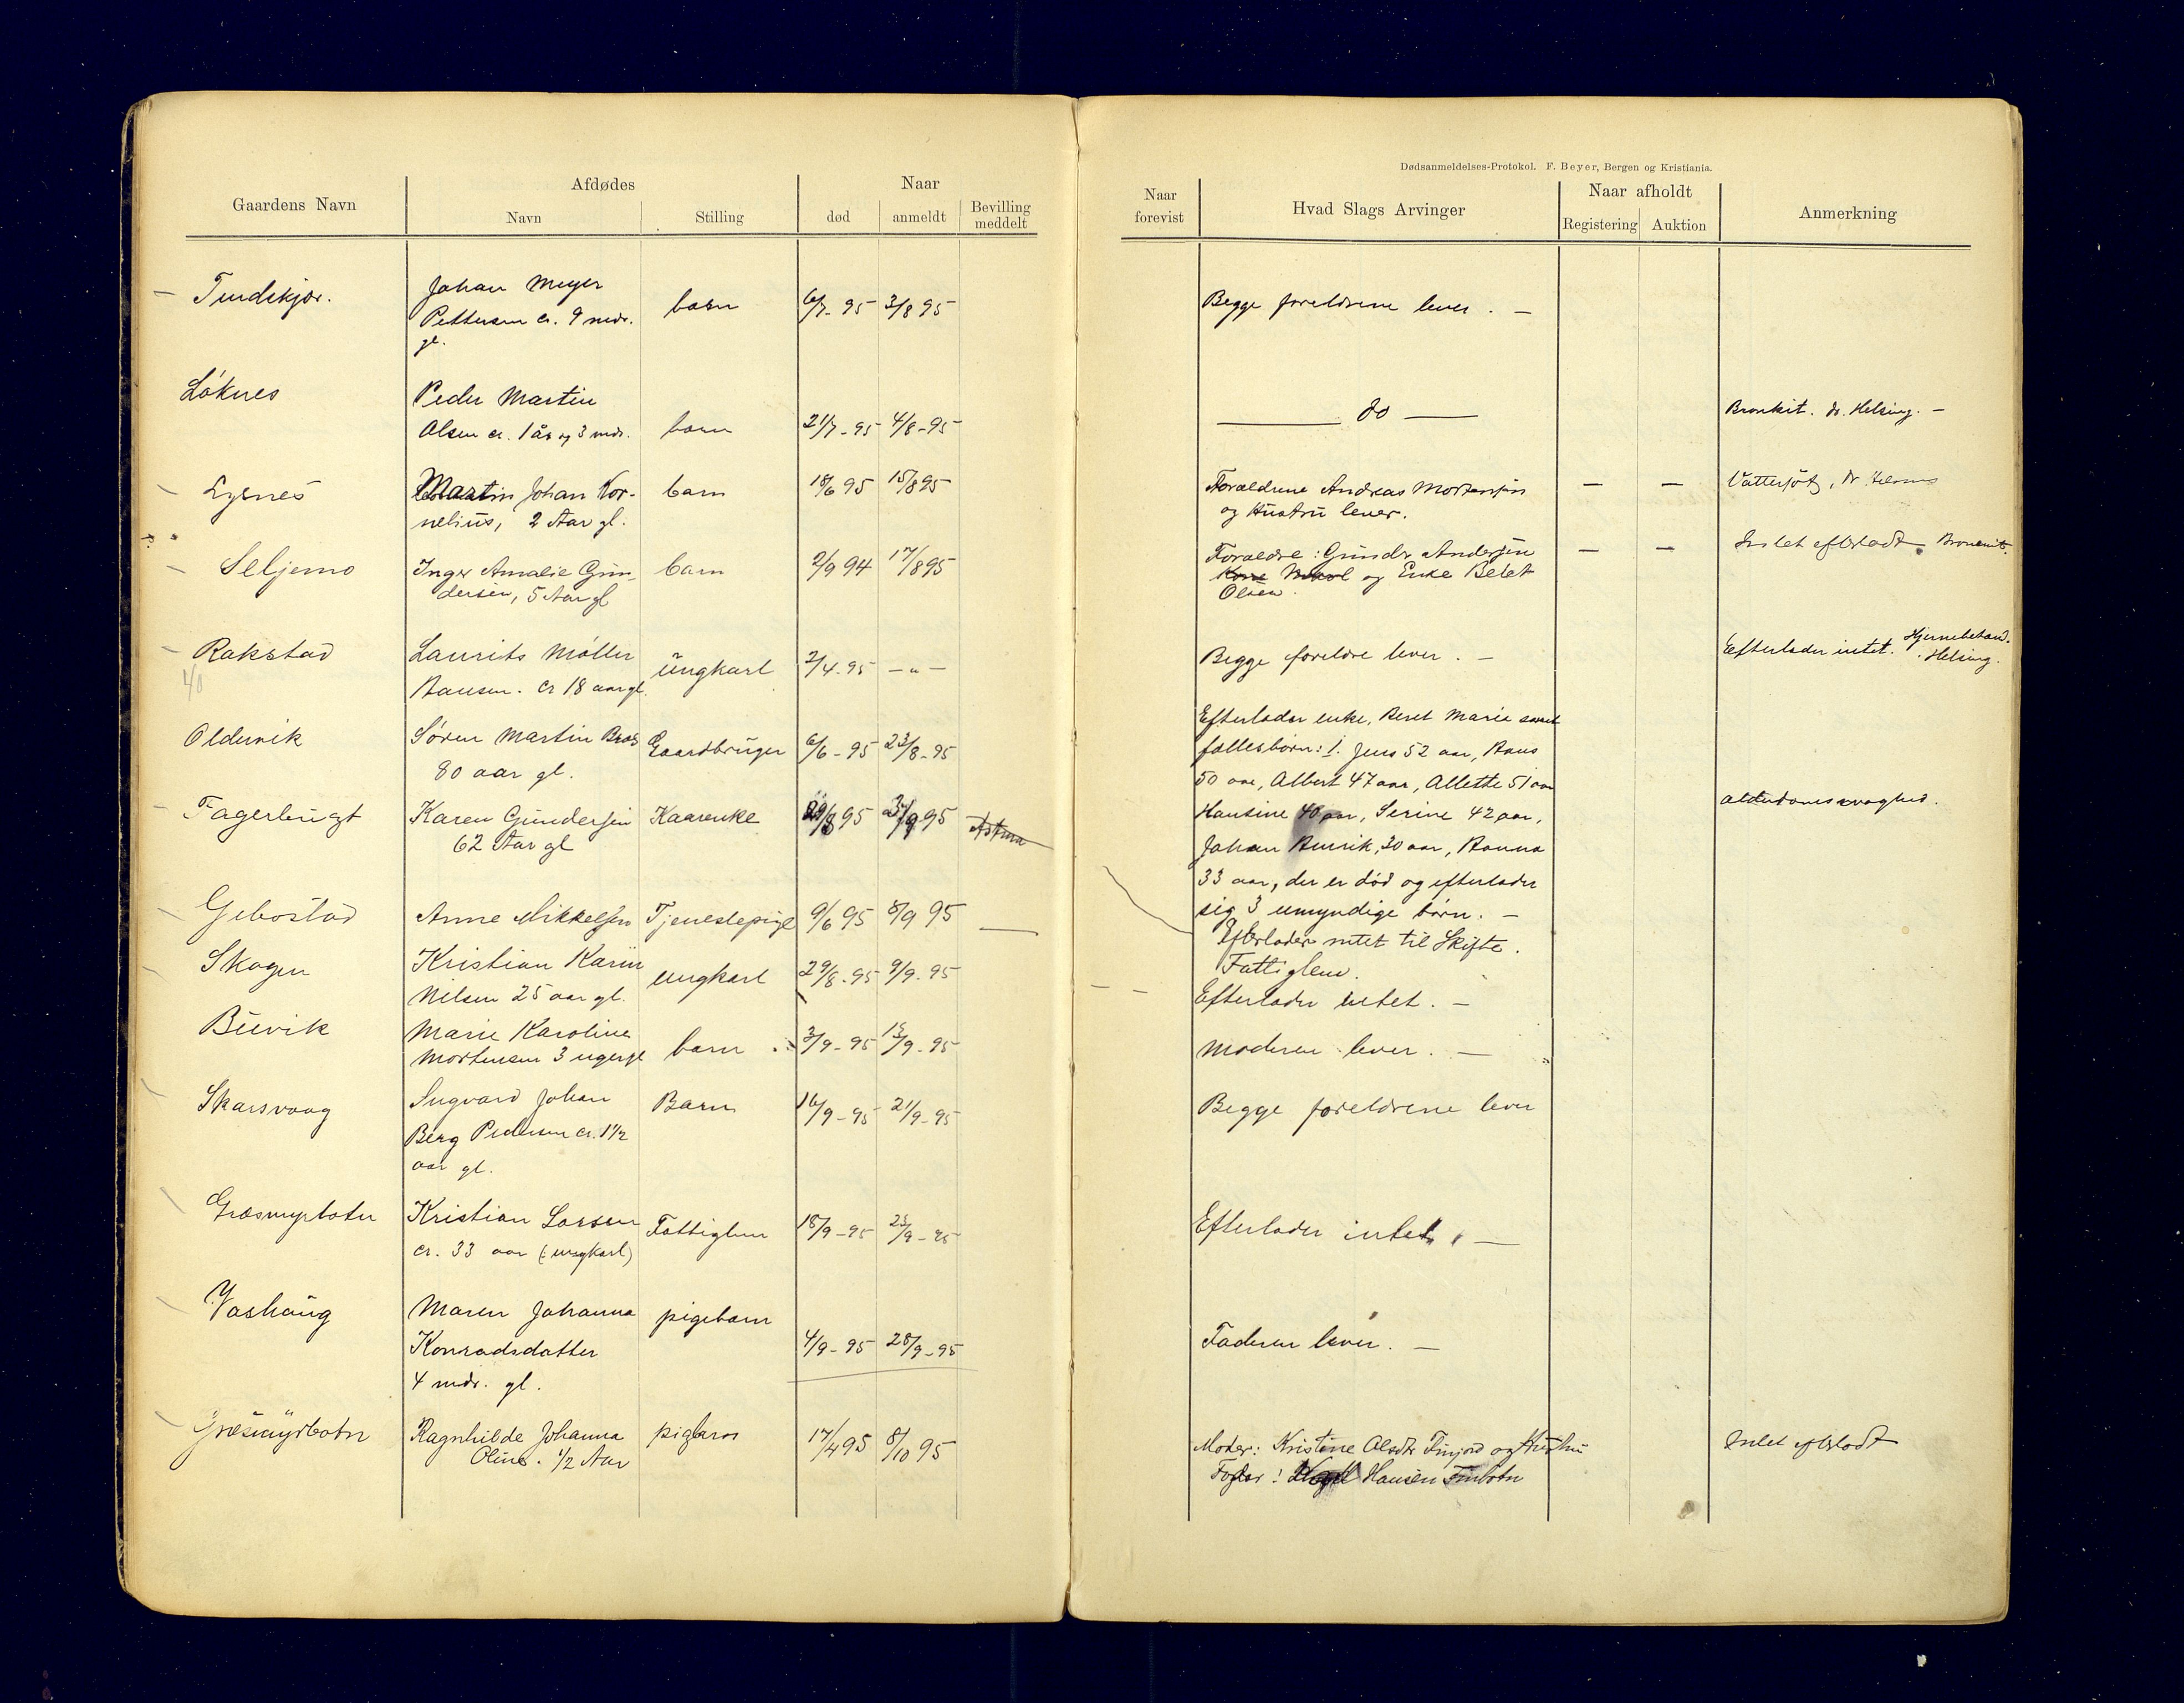 Dødsanmeldelses-Protokol. F. Beyer, Bergen og Kristiania.
Gaardens Navn
Afdødes
Navn
Stilling
Naar
død
anmeldt
Bevilling
meddelt
Naar
forevist
Hvad Slags Arvinger
Naar afholdt
Registering
Auktion
Anmerkning
Johan Meyer
Pettersen cr. 9 mdr.
gl.
barn
6/7-95 3/8 95
Begge foreldrene lever. —
Løknes
Peder Martin
Olsen cr. 1 år og 3 mdr.
barn
21/7-95 4/8-95
— do —
Bronkit. dr. Helsing. —
Lysnes
Martin Johan Kor-
nelius, 2 Aar gl.
barn
18/6 95 15/8 95
Forældrene Andreas Mortensen
og Hustru lever.
— —
dr
Seljemo
Inger Amalie Gun-
dersen, 5 Aar gl
barn
2/9 94 17/8 95
Forældre: Gunder Andersen
og Enke Beret
Olsen.
— —
Intet efterladt.
Rakstad
40
Laurits Møller
Hansen. cr 18 aar gl.
ungkarl
2/4-95 — " —
Begge foreldre lever. —
Efterlader intet.
Helsing.
Oldervik
Søren Martin
80 aar gl.
Gaardbruger
6/6-95 23/8-95
Efterlader enke, Beret Marie samt
fællesbørn: 1. Jens 52 aar, Hans
50 aar, Albert 47 aar, Allette 51 aar
Hansine 40 aar, Serine 42 aar,
Johan Henrik, 30 aar, Hanna
33 aar, der er død og efterlader
sig 3 umyndige børn. —
alderdomssvaghed.
Fagerbugt
Karen Gundersen
62 Aar gl
Kaarenke
95 95
Astma
Gebostad
Anne Mikkelsen
Tjenestepige
9/6 95 8/9 95
Efterlader intet til Skifte.
Fattiglem.
Skogen
Kristian
Nilsen 25 aar gl.
ungkarl
29/8-95 9/9-95
Efterlader intet. —
Buvik
Marie Karoline
Mortensen 3 uger gl
barn
3/9-95 15/9-95
Moderen lever. —
Skarsvaag
Johan
Berg Pedersen cr. 1 1/2
aar gl.
Barn
16/9-95 21/9-95
Begge foreldrene lever
Græsmyrbotn
Kristian Larsen
cr. 33 aar (ungkarl)
Fattiglem
18/9-95 23/9-95
Efterlader intet. —
Vashaug
Maren Johanna
Konradsdatter
4 mdr. gl.
pigebarn
4/9-95 28/9-95
Faderen lever. —
Græsmyrbotn
Ragnhilde Johanna
Oline. 1/2 Aar
pigebarn
17/4 95 8/10 95
Moder: Kristine Olsdtr Finjord
Fader: Hansen Finbotn
Intet efterladt